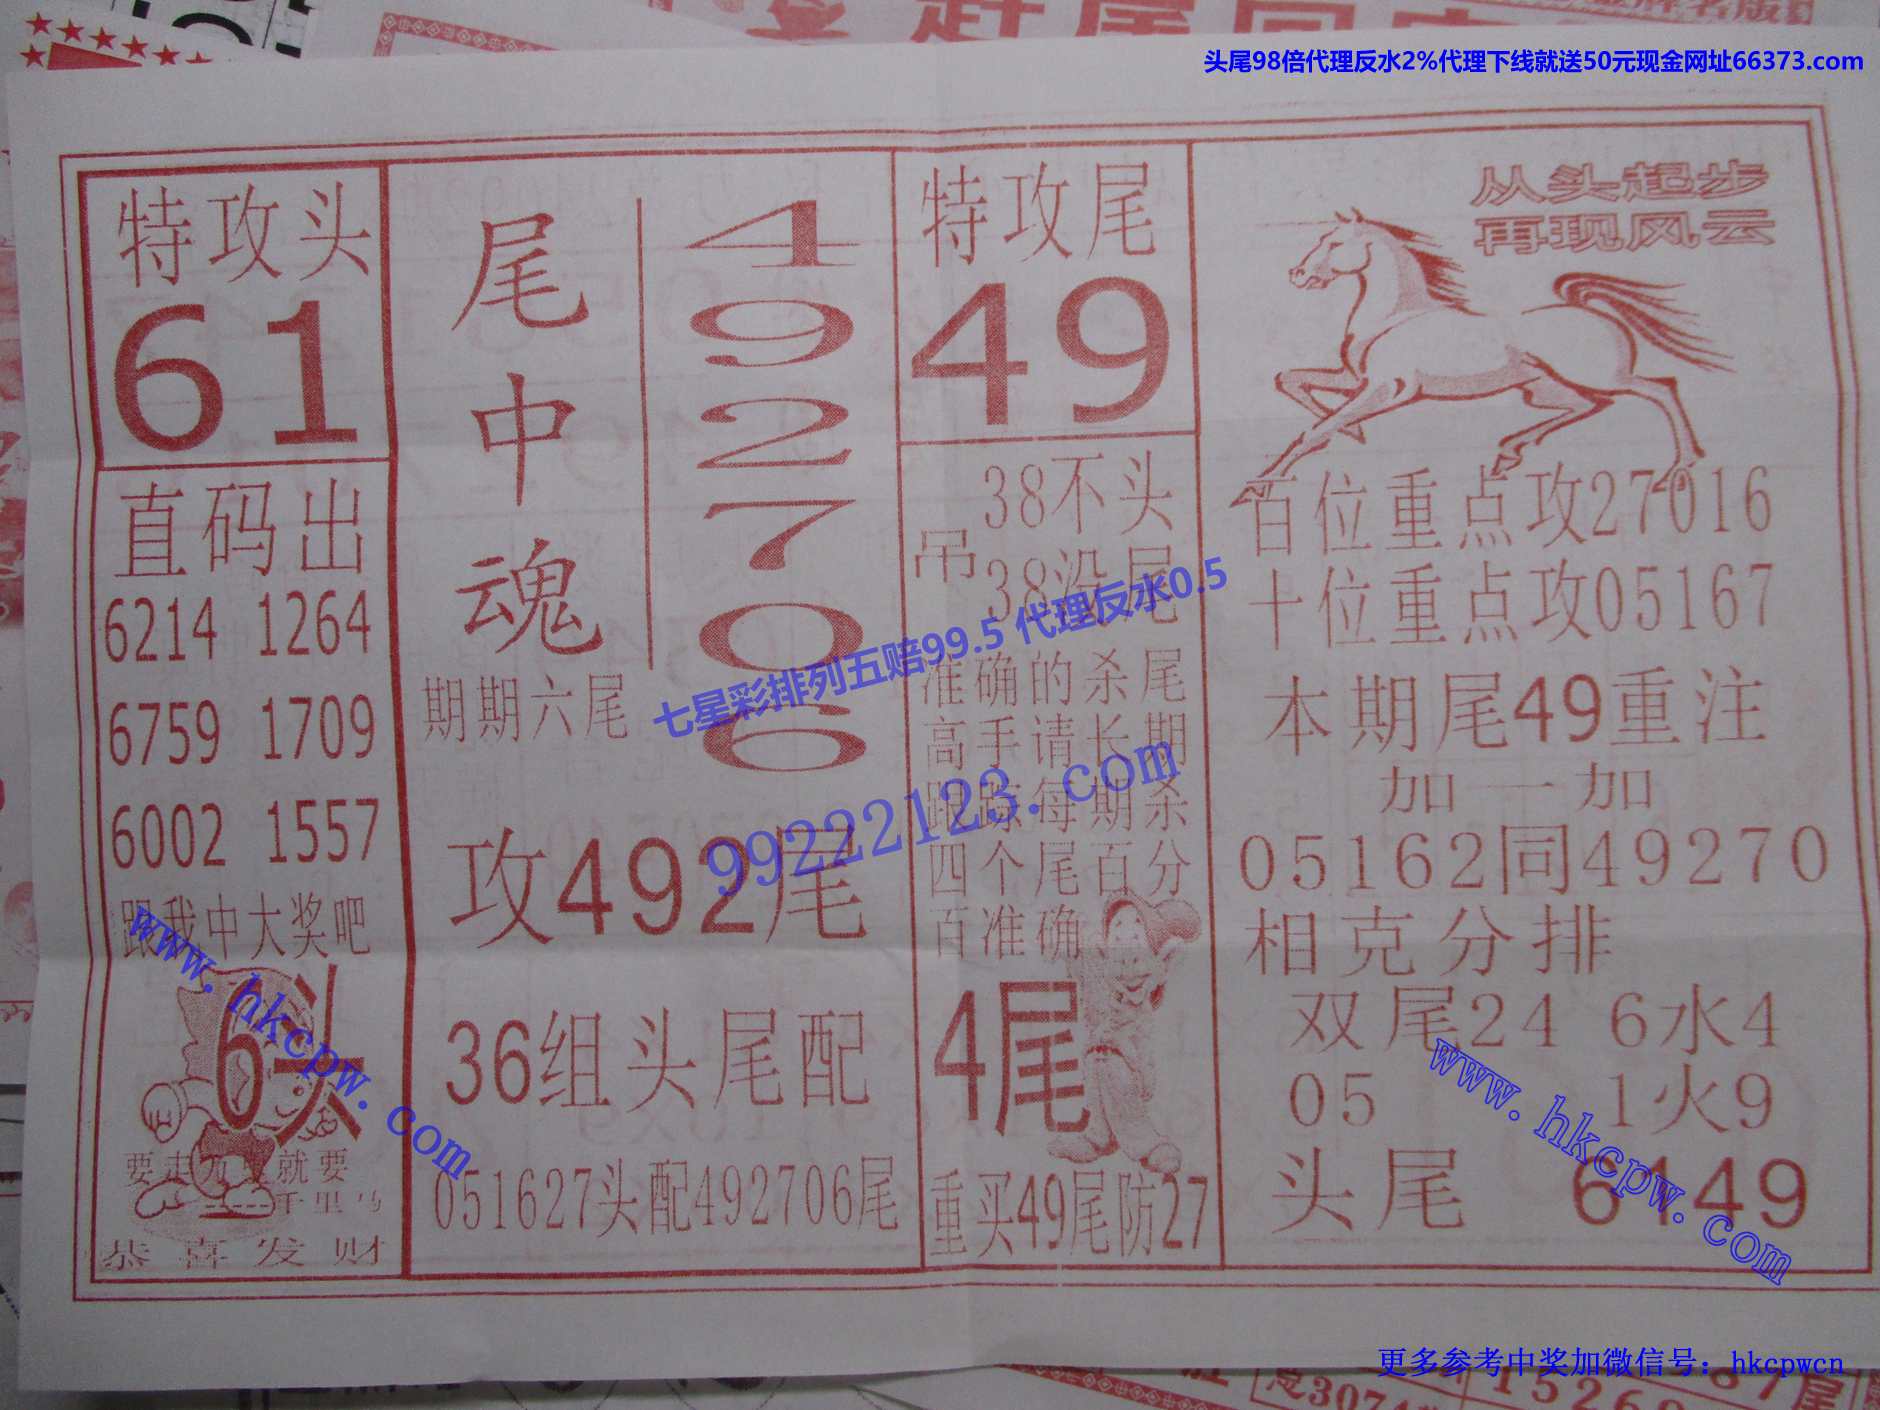 头尾98倍代理反水2%代理下线就送50元现金网址66373.com
特攻头
61
直码出
6214 1264
6759 1709
6002 1557
跟我中大奖吧
6头
要走 就要
千里马
恭喜发财
尾中魂
492706
期期六尾
攻492尾
36组头尾配
051627头配492706尾
特攻尾
49
吊
38不头
38没尾
准确的杀尾
高手请长期
跟踪每期杀
四个尾百分
百准确
4尾
重买49尾防27
从头起步
再现风云
百位重点攻27016
十位重点攻05167
本期尾49重注
加一加
05162同49270
相克分排
双尾24 6水4
05 1火9
头尾 6149
七星彩排列五赔99.5 代理反水0.5
99222123.com
www.hkcpw.com
www.hkcpw.com
更多参考中奖加微信号：hkcpwcn